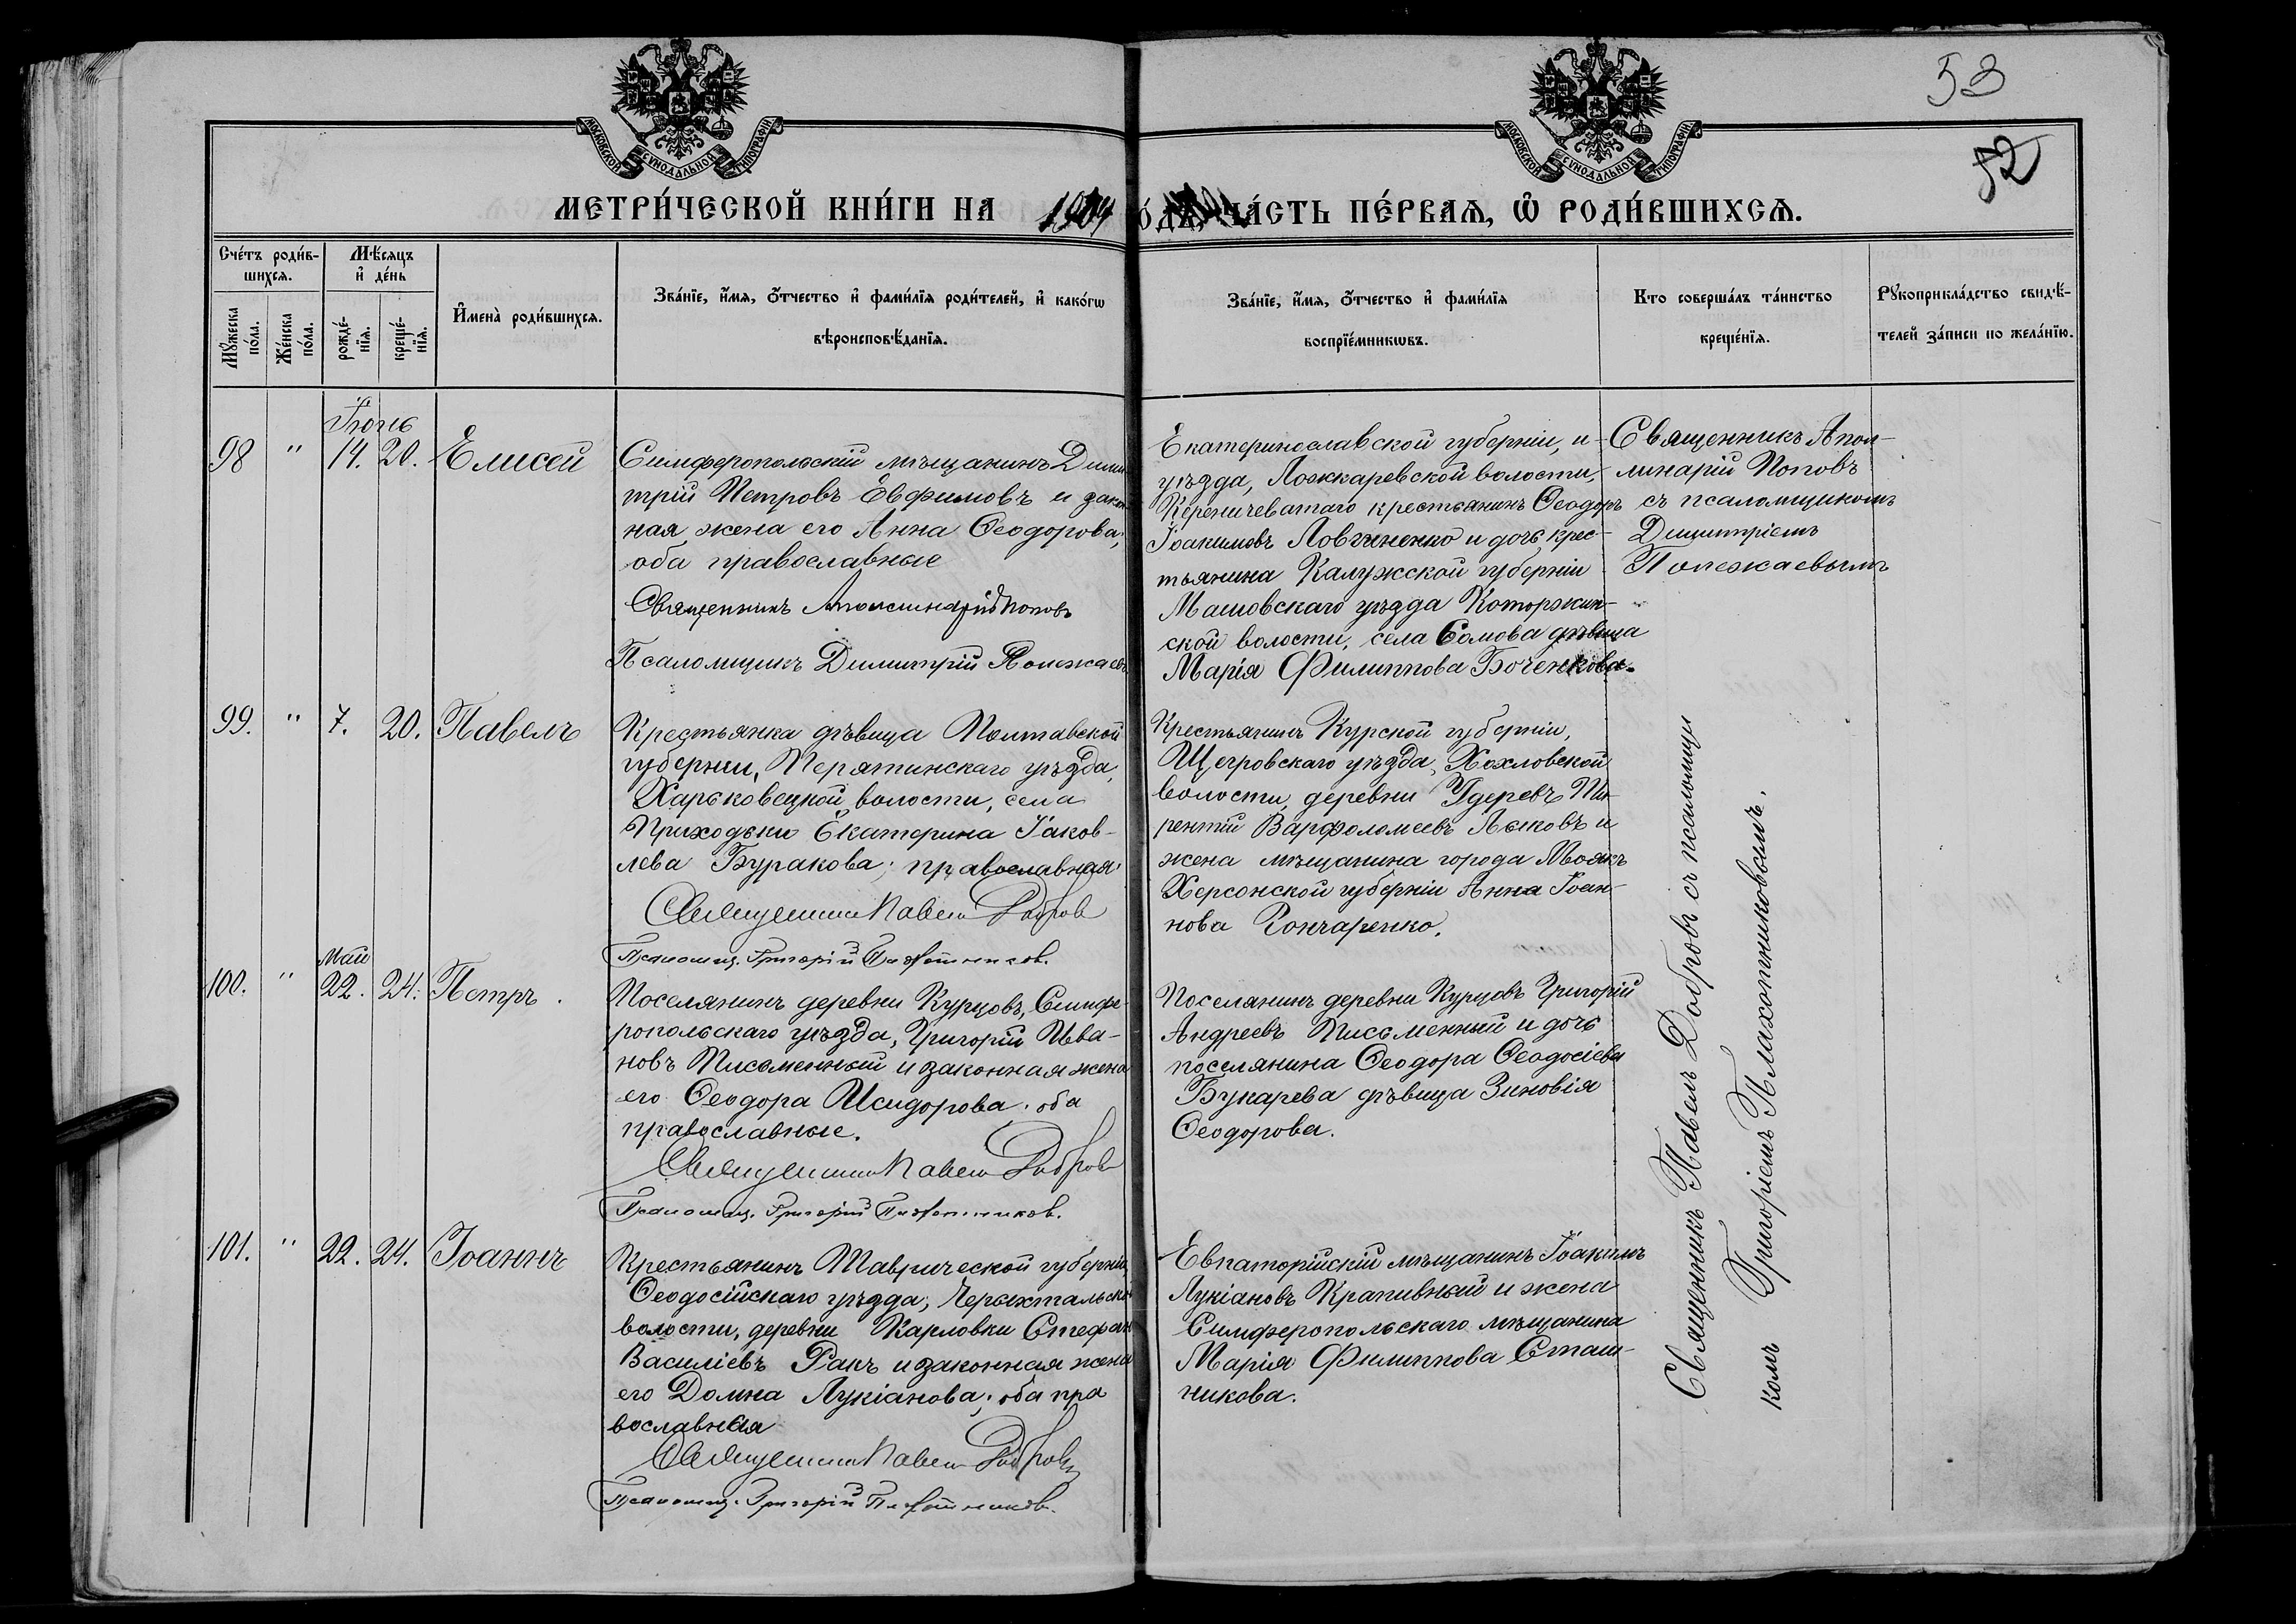 53
52
МОСКОВСКОЙ СѴНОДАЛЬНОЙ ТИПОГРАФІИ
МОСКОВСКОЙ СѴНОДАЛЬНОЙ ТИПОГРАФІИ
МЕТРИ́ЧЕСКОЙ КНИ́ГИ НА 1904 ЧА́СТЬ ПЕ́РВАѦ, Ѡ РОДИ́ВШИХСѦ.
Сче́тъ роди́в-
шихсѧ.
Мꙋжеска по́ла.
Же́нска по́ла.
Мѣ́сѧцъ и де́нь
рожде́-
нїѧ.
креще́-
нїѧ.
Имена̀ роди́вшихсѧ.
Зва́нїе, и́мѧ, ѻ́тчество и фами́лїѧ роди́телей, и како́гѡ
вѣроисповѣ́данїѧ.
Зва́нїе, и́мѧ, ѻ́тчество и фами́лїѧ
воспрїе́мникѡвъ.
Кто соверша́лъ та́инство
креще́нїѧ.
Рꙋкоприкла́дство свидѣ́-
телей за́писи по жела́нїю.
Іюнь
98 " 14. 20. Елисей
Симферопольскій мѣщанинъ Дими
трій Петровъ Евфимовъ и закон
ная жена его Анна Ѳеодорова,
оба православные
Священникъ Аполлинарій Поповъ
Псаломщикъ Димитрій Полежаевъ
Екатеринославской губерніи, и
уѣзда, Лошкаревской волости,
крестьянинъ Ѳеодоръ
Іоакимовъ Ловгиненко и дочь крес-
тьянина Калужской губерніи
уѣзда
ской волости, села Сомова дѣвица
Марія Филиппова Боченкова.
Священникъ Апол-
линарій Поповъ
съ псаломщикомъ
Димитріемъ
Полежаевымъ
99. " 7. 20. Павелъ
Крестьянка дѣвица Полтавской
губерніи, Перятинскаго уѣзда,
Харьковецкой волости, села
Приходьки Екатерина Іаков-
лева Буракова; православная
Священникъ Павелъ Добровъ
Псаломщ. Григорій Плахотниковъ.
Крестьянинъ Курской губерніи,
Щегровскаго уѣзда, Хохловской
волости, деревни Удеревъ
Варфоломеевъ Лыковъ и
жена мѣщанина города Маякъ
Херсонской губерніи Анна Іоан-
нова Гончаренко.
Май
100. " 22. 24. Петръ.
Поселянинъ деревни Курцовъ, Симфе-
ропольскаго уѣзда, Григорій Ива-
новъ Письменный и законная жена
его Ѳеодора Исидорова. оба
православные.
Священникъ Павелъ Добровъ
Псаломщ. Григорій Плахотниковъ.
Поселянинъ деревни Курцовъ Григорій
Андреевъ Письменный и дочь
поселянина Ѳеодора Ѳеодосіева
Букарева дѣвица Зиновія
Ѳеодорова.
101. " 22. 24. Іоаннъ
Крестьянинъ Таврической губерніи,
Ѳеодосійскаго уѣзда,
волости, деревни Карловки Стефан
Василіевъ Ракъ и законная жена
его Домна Лукіанова; оба пра
вославныя
Священникъ Павелъ Добровъ
Псаломщ. Григорій Плахотниковъ.
Евпаторійскій мѣщанинъ Іоакимъ
Лукіановъ Крапивный и жена
Симферопольскаго мѣщанина
Марія Филиппова Сташ-
никова.
Священникъ Павелъ Добровъ съ псаломщи
комъ Григоріемъ Плахотниковымъ.